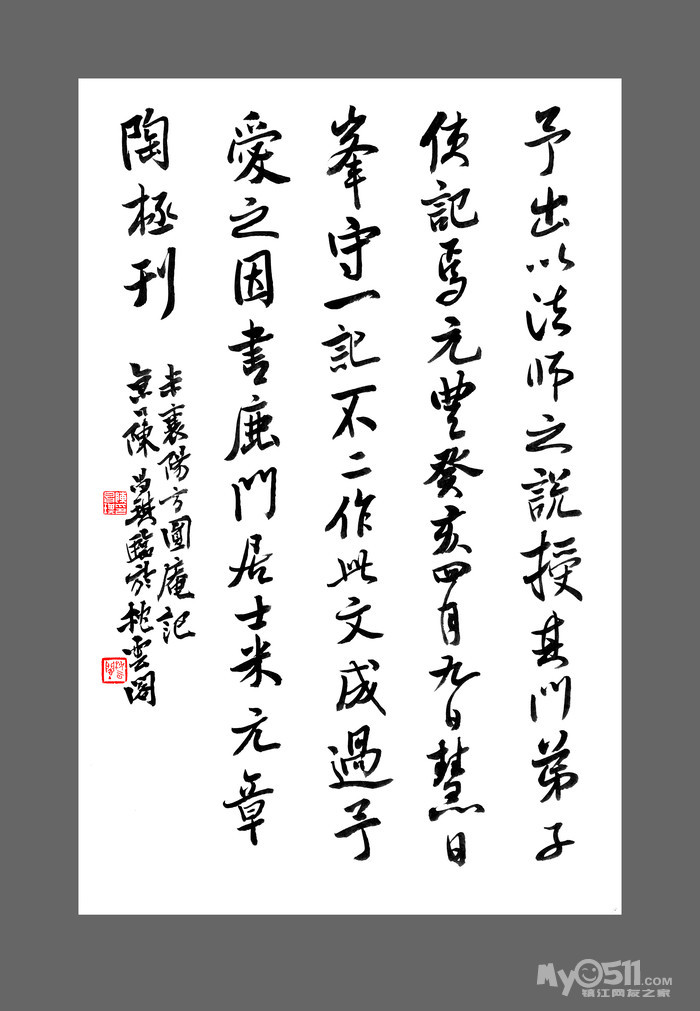 予出以法师之說授其門弟子
使記焉元豐癸亥四月九日慧日
峯守一記不二作此文成過予
愛之因書鹿門居士米元章
陶極刊
米襄陽方圓庵記
京口陳
琪臨於枕雲閣
MyO511.com
镇江网友之家